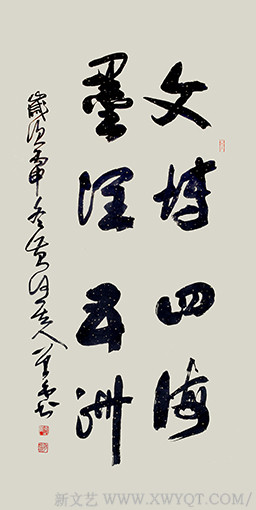 文博四海
墨润五洲
歲次丙申冬黄河
新文艺 WWW.XWYQT.COM/